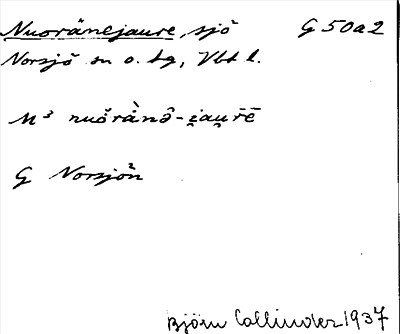 Nuoränejaure, sjö G 50a2
Norsjö sn o. tg, Vbt l.
M³ nuŏrᴀ̀nə̑-i̯au̯rē
G Norsjön
Björn Collinder 1937